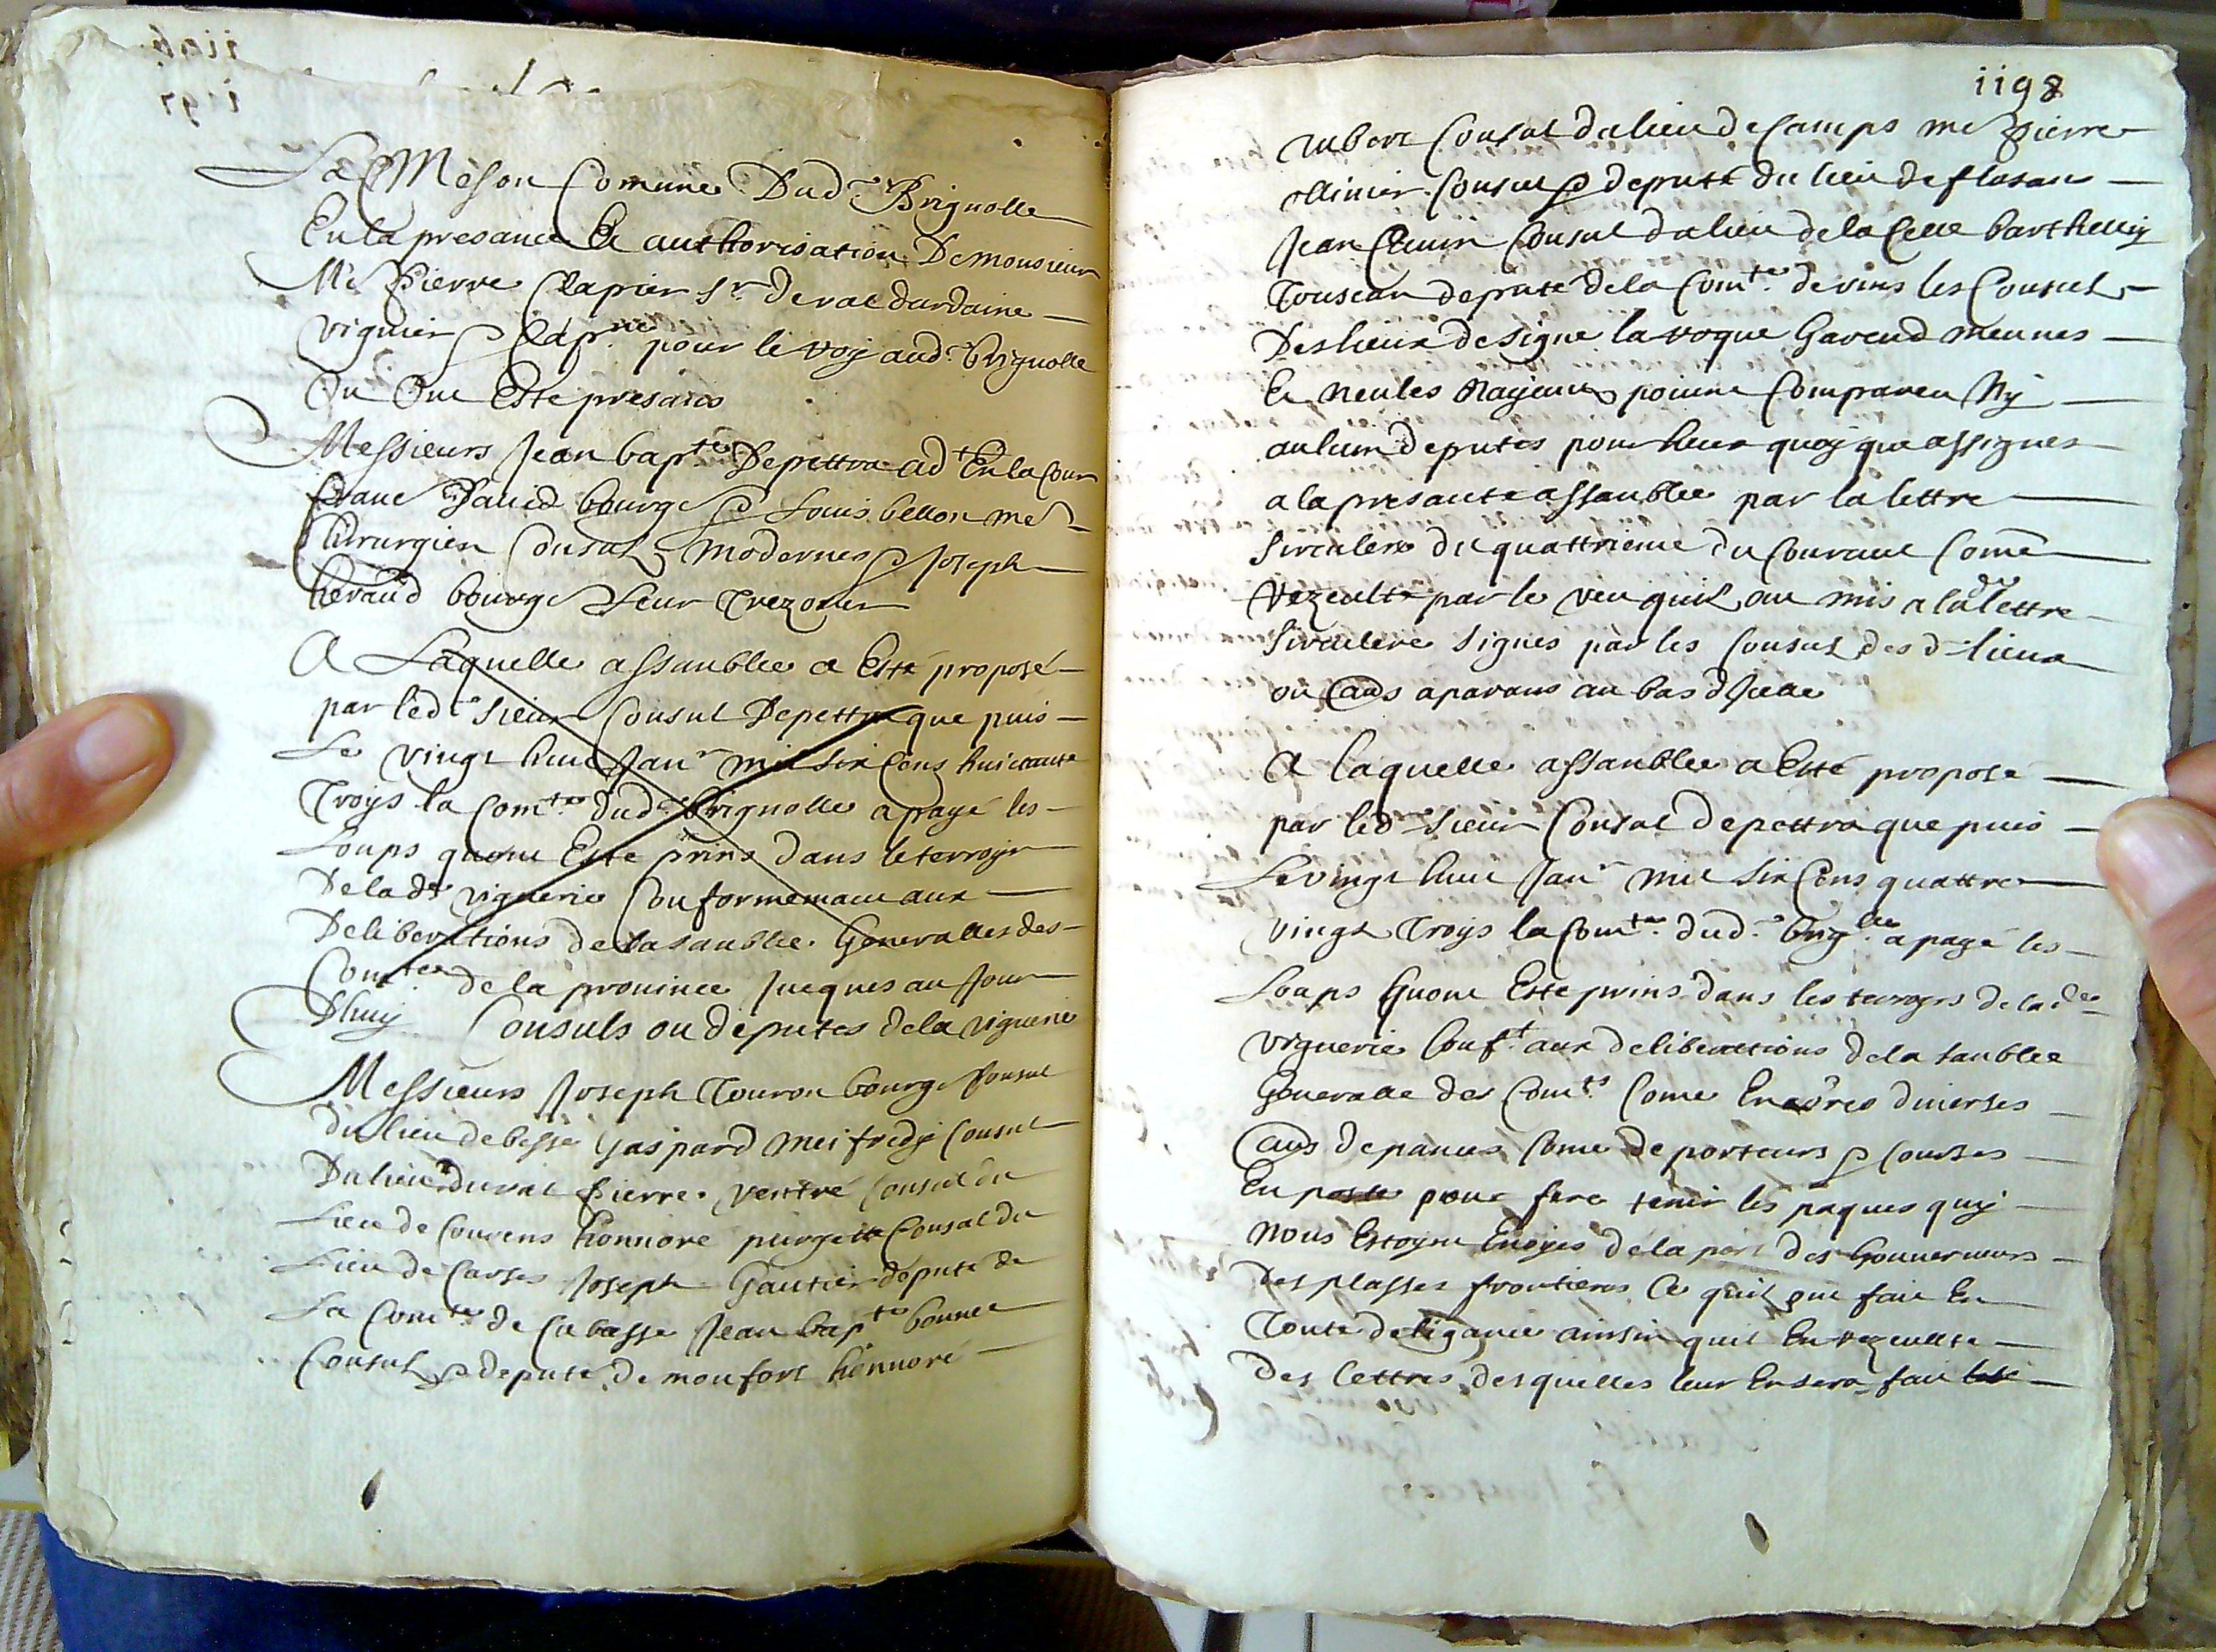 La Meson Comune Dud.ᵗ Brignolle
En la presance Et authorisation De monsieur
Mᵉ Pierre Clapier sʳ. de val dardaine
viguier & Cap.ⁿᵉ pour le roy aud. Brignolle
Ou Ont Este presans
Messieurs Jean bap.ᵗᵉ Depettra adᵗ En la Cour
David bourg.s & Louis bellon mᵉ
Chirurgien Consulz modernes & Joseph
heraud bourg.s Leur Trezorier
A Laquelle assanblee a Esté proposé
par led.ᵗ sieur Consul Depettra que puis
Le vingt huit Janʳ mil six Cens huictante
Troys la Com.ᵗᵉ dud. Brignolle a payé les
Loups quont Este prins dans le terroyr
De lad.ᵗᵉ viguerie Conformemant aux
Deliberations de lasanblee Generalles des
Com.ᵗᵉˢ de la prouince Jucques au Jour
Dhuy Consuls ou deputes de la viguerie
Messieurs Joseph Touron bourg.s Consul
Du lieu de besse Gaspard meifredy Consul
Du lieu du val Pierre ventre Consul du
Lieu de Correns honnore Consul du
Lieu de Carses Joseph Gautier députe de
La Com.ᵗᵉ de Cabasse Jean bap.ᵗᵉ bonnet
Consul & depute de monfort honnoré
1198
Consul du lieu de Camps mᵉ Pierre
ollivier Consul & deputé du lieu de flasans
Jean Consul du lieu de la Celle barthellemy
Touscan depute de la Com.ᵗᵉ de vins les Consuls
Des lieux de signe la roque Gareoud meunes
Et neules Nayant point Compareu Ny
aulcun deputes pour heux quoy que assignes
a la presante assanblee par la lettre
sirculere du quattrieme du Courant Come
rezeulte par le veu quilz ont mis a la dᵉ lettre
sirculere signes par les Consulz des d. lieux
ou Cads aparans au bas dJcelle
A laquelle assanblee a Esté propose
par led.ᵗ sieur Consul depettra que puis
Le vingt huit Janʳ mil six Cens quattre
vingt Troys la Com.ᵗᵉ dud. Brig.ˡˡᵉ a paye les
Loups quont Este prins dans les terroyrs de lad.ᵗᵉ
viguerie Conf.ᵗ aux deliberations de la sanblee
Generalle des Com.ᵗˢ Come Encores diverses
Come de porteurs & Courses
En poste pour fere tenir les paques quy
nous Estoyent Envoyes de la part des Gouverneurs
Des plasses frontieres Ce quilz ont fait En
Toute deligance ainsin quil En rezeulte
Des lettres desquelles leur En sera fait